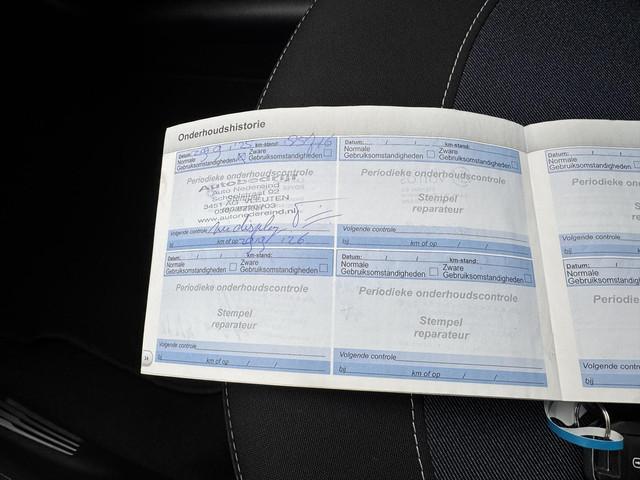 Onderhoudshistorie
Datum: km-stand:
Normale Gebruiksomstandigheden
Zware Gebruiksomstandigheden
Periodieke onderhoudscontrole
Autobedrijf
Auto Nedereind
Schoolstraat 02
3451 AG VLEUTEN
www.autonedereind.nl
Volgende controle
bij km of op
Datum: / / km-stand:
Normale Gebruiksomstandigheden
Zware Gebruiksomstandigheden
Periodieke onderhoudscontrole
Stempel
reparateur
Volgende controle
bij km of op / /
Datum: / / km-stand:
Normale Gebruiksomstandigheden
Zware Gebruiksomstandigheden
Periodieke onderhoudscontrole
Stempel
reparateur
Volgende controle
bij km of op / /
Datum: / / km-stand:
Normale Gebruiksomstandigheden
Zware Gebruiksomstandigheden
Periodieke onderhoudscontrole
Stempel
reparateur
Volgende controle
bij km of op / /
Datum:
Normale
Gebruiksomstandigheden
Periodieke
Volgende controle
bij
Datum:
Normale
Gebruiksomstandigheden
Volgende controle
bij